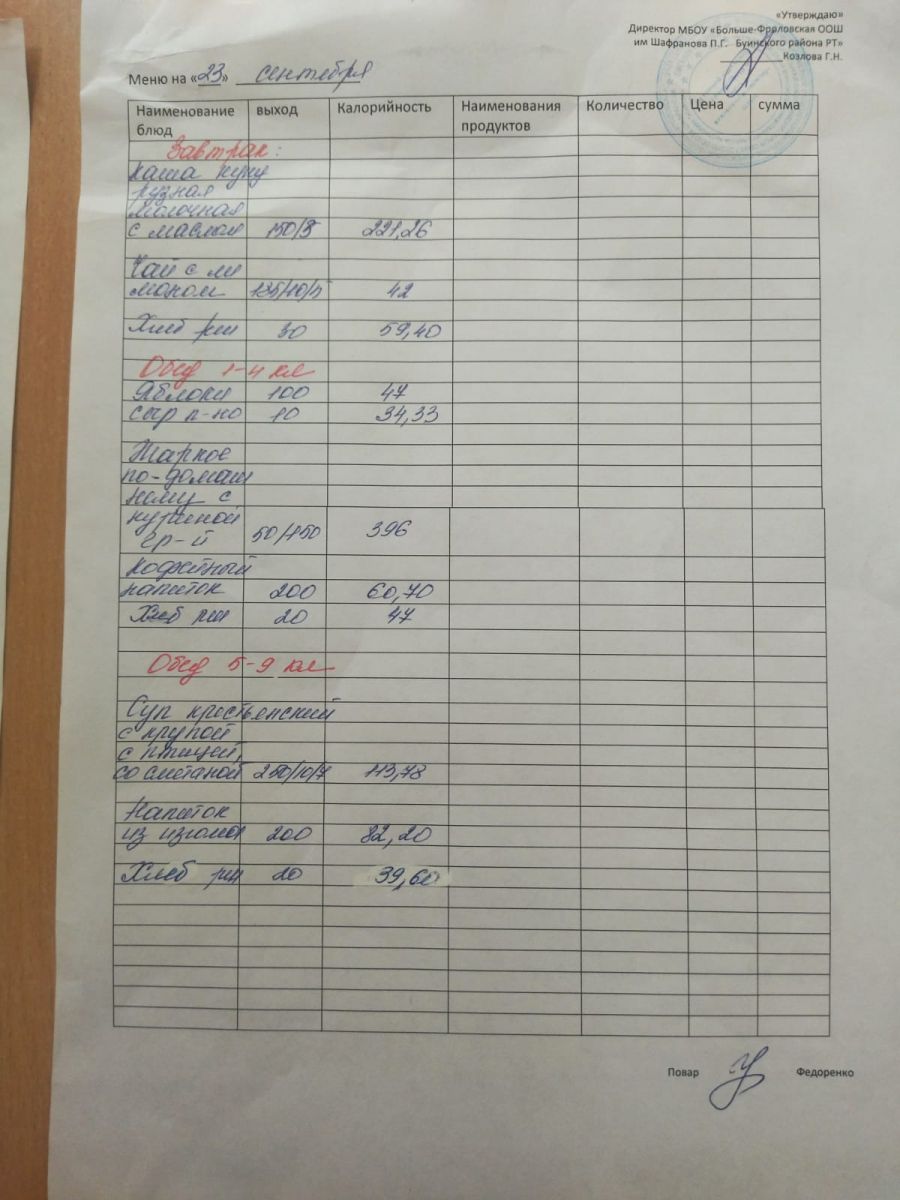 «Утверждаю»
Директор МБОУ «Больше-Фроловская ООШ
им Шафранова П.Г. Буинского района РТ»
Козлова Г.Н.
Меню на «23» сентября
Наименование блюд выход Калорийность Наименования продуктов Количество Цена сумма
Завтрак:
Каша куку
рузная
молочная
с маслом 150/5 221,26
Чай с ли
моном 185/10/5 42
Хлеб рж 30 59,40
Обед 1-4 кл
Яблоки 100 47
Сыр п-но 10 34,33
Жаркое
по-домаш
нему с
куриной
гр-й 50/150 396
Кофейный
напиток 200 60,70
Хлеб рж 20 47
Обед 5-9 кл
Суп крестьянский
с крупой
с птицей,
со сметаной 250/10/7 113,78
Напиток
из изюма 200 82,20
Хлеб рж 20 39,60
Повар Федоренко